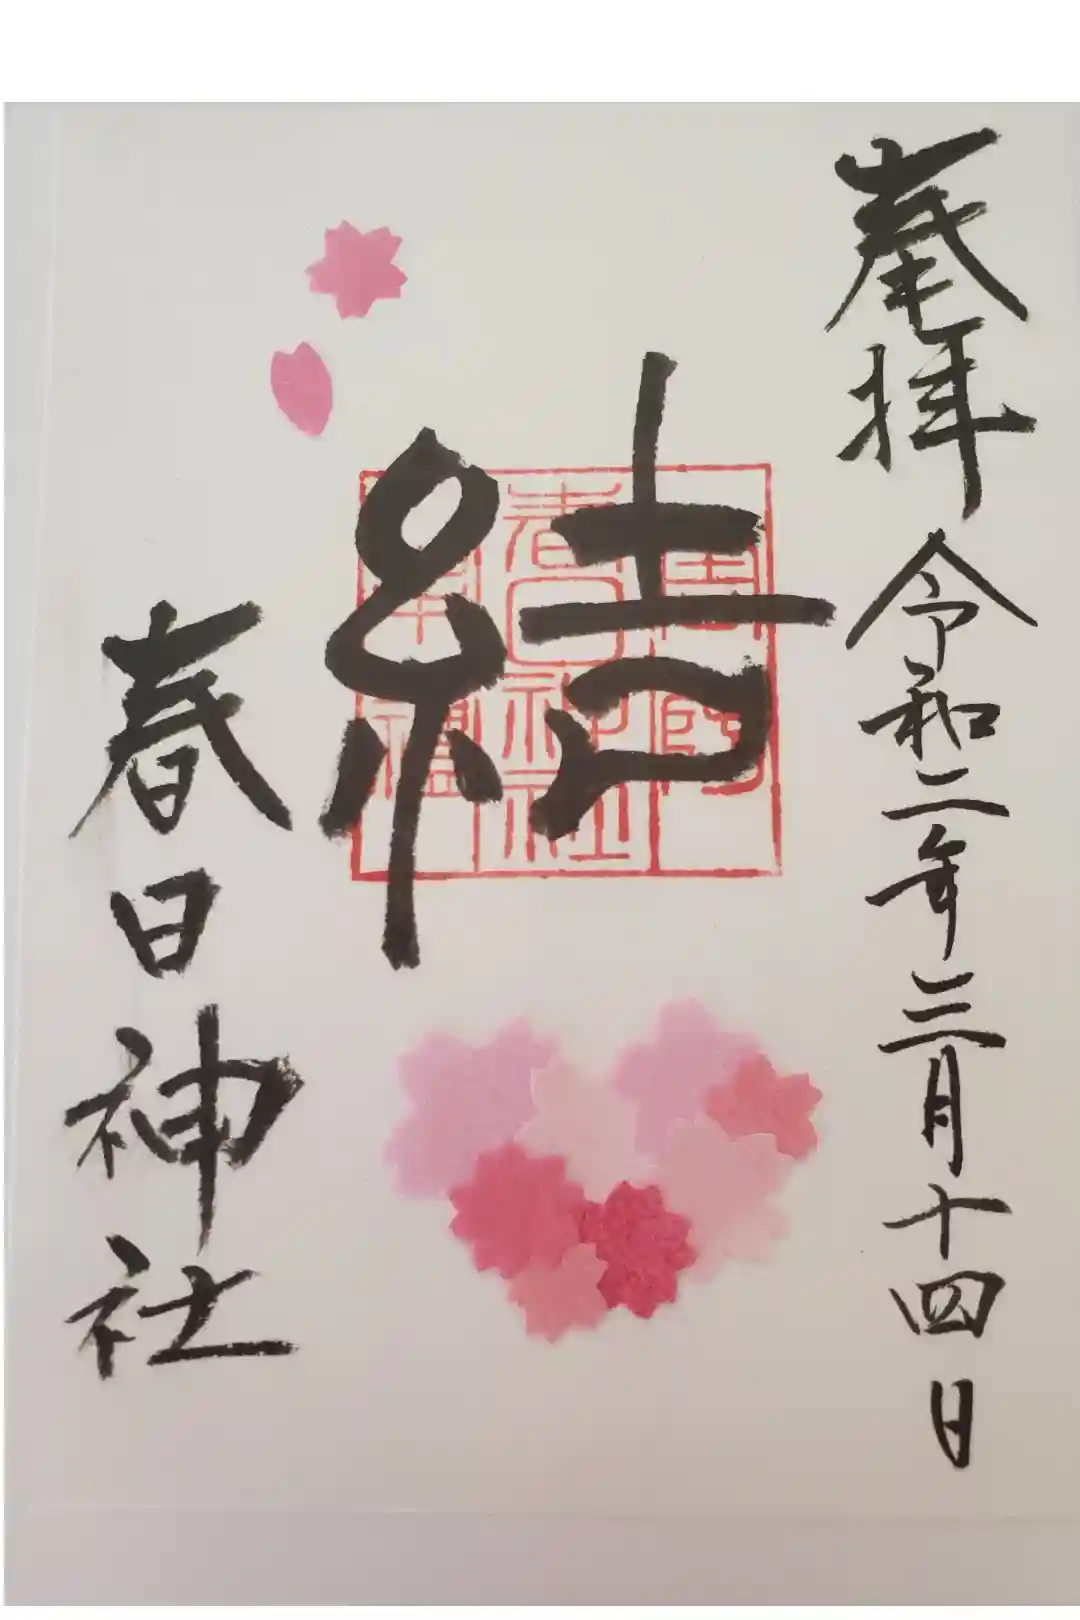 奉拝 令和二年三月十四日
結
春日神社
春日神社